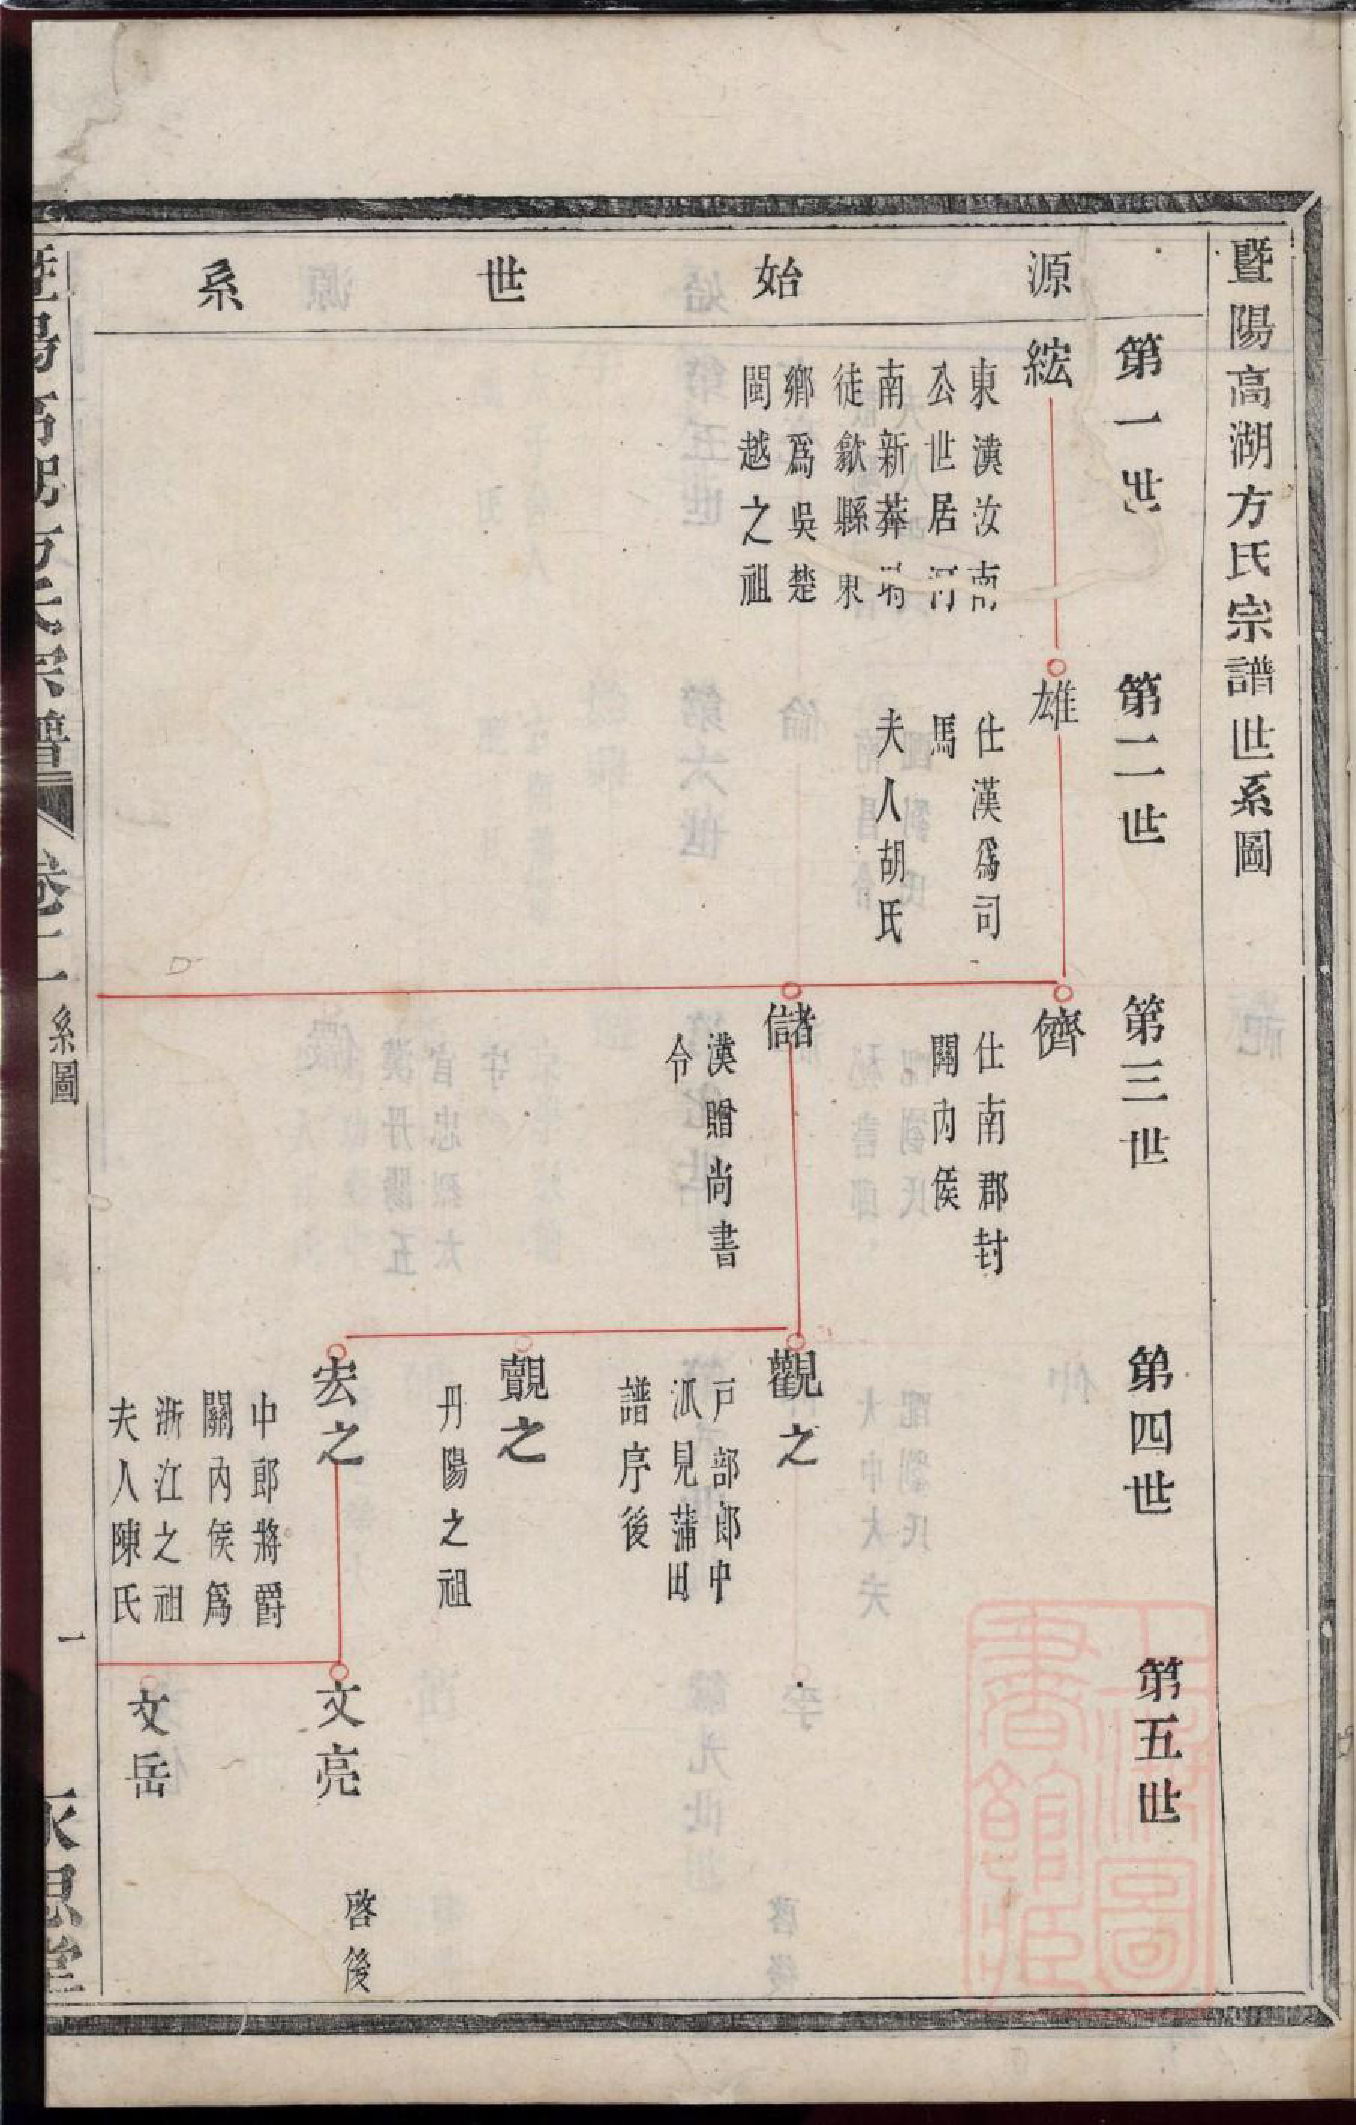 暨陽高湖方氏宗譜世系圖
源始世系
第一世
紘
東漢汝南
公世居河
南新莽時
徒歙縣東
鄉爲吳楚
閩越之祖
第二世
雄
仕漢爲司
馬
夫人胡氏
第三世
儕
仕南郡封
關內侯
儲
漢贈尚書
令
第四世
觀之
戸部郎中
派見蒲田
譜序後
覿之
丹陽之祖
宏之
中郎將爵
關內侯爲
浙江之祖
夫人陳氏
第五世
文亮
啓後
文岳
暨陽高湖方氏宗譜
卷二
系圖
一
永思堂
上海圖書館藏